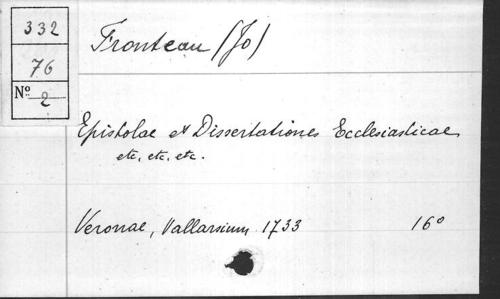 332
76
Nº 2
Fronteau (Jo)
Epistolae et Dissertationes Ecclesiasticae
etc, etc, etc.
Veronae, Vallarsium 1733 16º